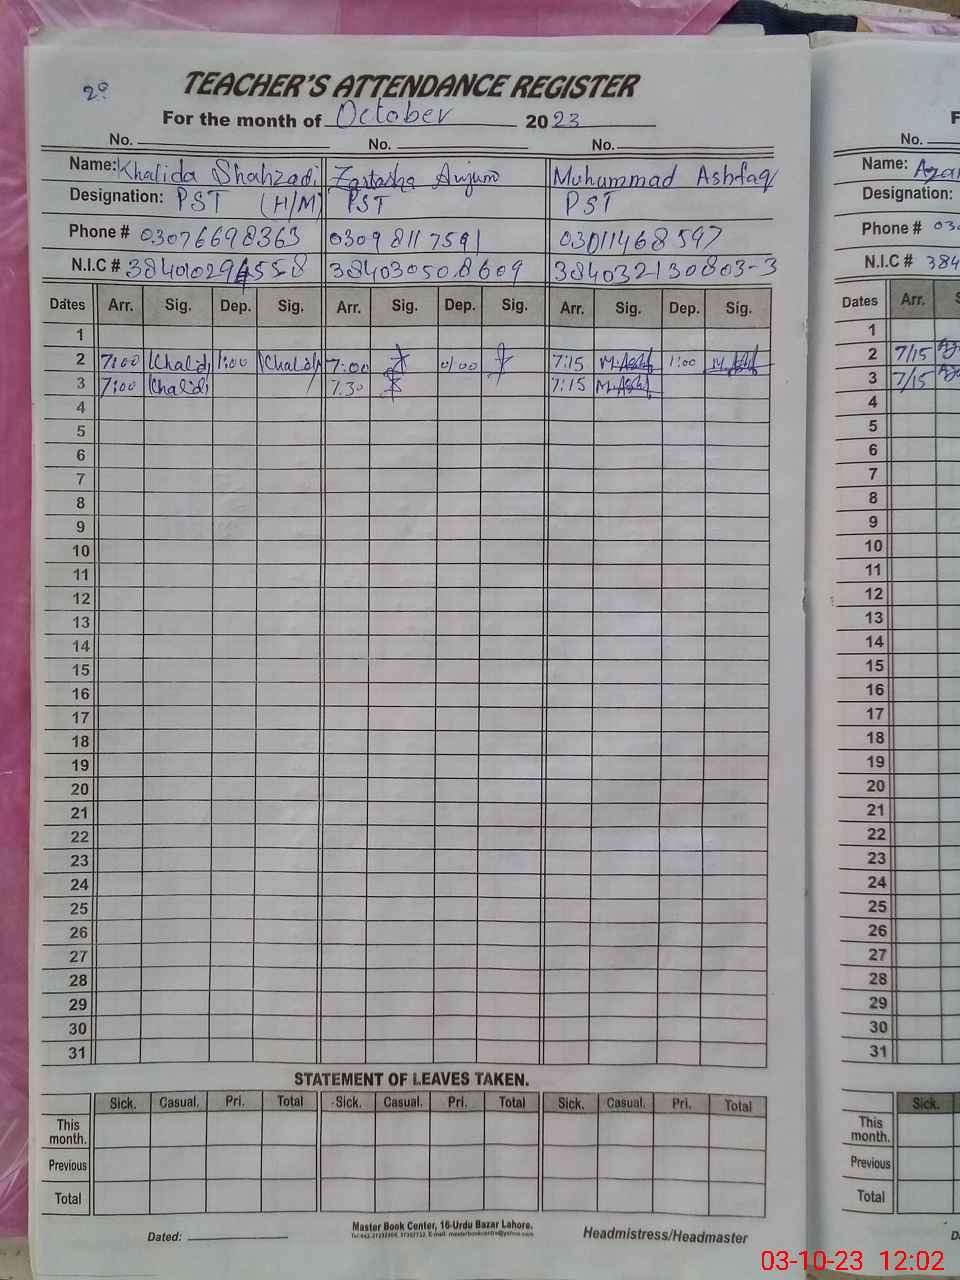 2°
TEACHER'S ATTENDANCE REGISTER
For the month of October 2023
No. No. No.
Name: Khalida Shahzadi Zartasha Anjum Muhammad Ashfaq
Designation: PST (H/M) PST PST
Phone # 03076698363 03098117591 03011468597
N.I.C # 3840302130803-3
Dates Arr. Sig. Dep. Sig. Arr. Sig. Dep. Sig. Arr. Sig. Dep. Sig.
1
2 7:00 Khalid 1:00 Khalid 7:00 01:00 7:15 M.Ashf 1:00 M.Ashf
3 7:00 Khalid 7.30 7:15 M.Ashf
4
5
6
7
8
9
10
11
12
13
14
15
16
17
18
19
20
21
22
23
24
25
26
27
28
29
30
31
STATEMENT OF LEAVES TAKEN.
Sick. Casual. Pri. Total Sick. Casual. Pri. Total Sick. Casual. Pri. Total
This month.
Previous
Total
Dated:
Master Book Center, 16-Urdu Bazar Lahore.
Headmistress/Headmaster
No.
Name:
Designation:
Phone # 03
N.I.C # 384
Dates Arr.
1
2 7/15
3 7/15
4
5
6
7
8
9
10
11
12
13
14
15
16
17
18
19
20
21
22
23
24
25
26
27
28
29
30
31
Sick.
This month.
Previous
Total
03-10-23 12:02